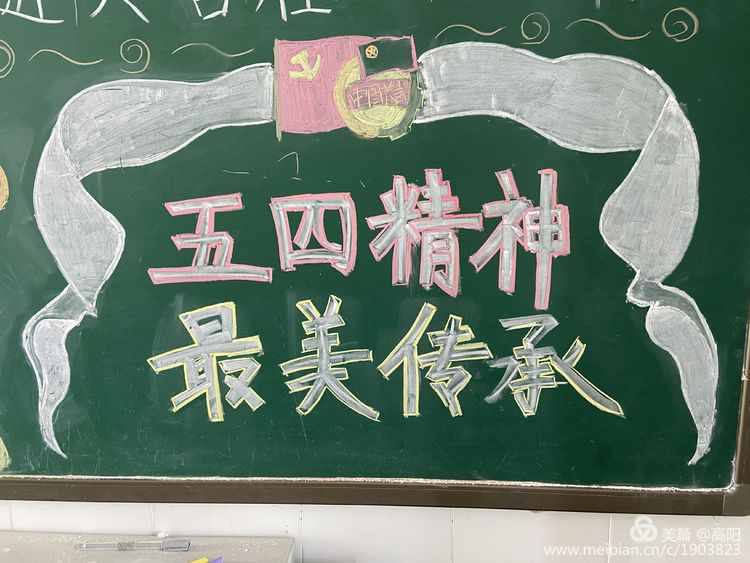 五四精神
最美传承
美篇 @高阳
www.meipian.cn/c/1903823